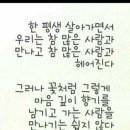 한 평생 살아가면서
우리는 참 많은 사람과
만나고 참 많은 사람과
헤어진다
그러나 꽃처럼 그렇게
마음 깊이 향기를
남기고 가는 사람을
만나기는 쉽지 않다